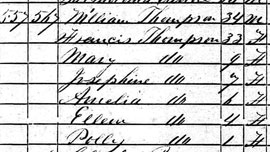 557 567 William Thompson 34 M
Francis Thompson 33 F
Mary do 9 F
Josephine do 7 F
Amelia do 6 F
Ellen do 4 F
Polly do 1 F